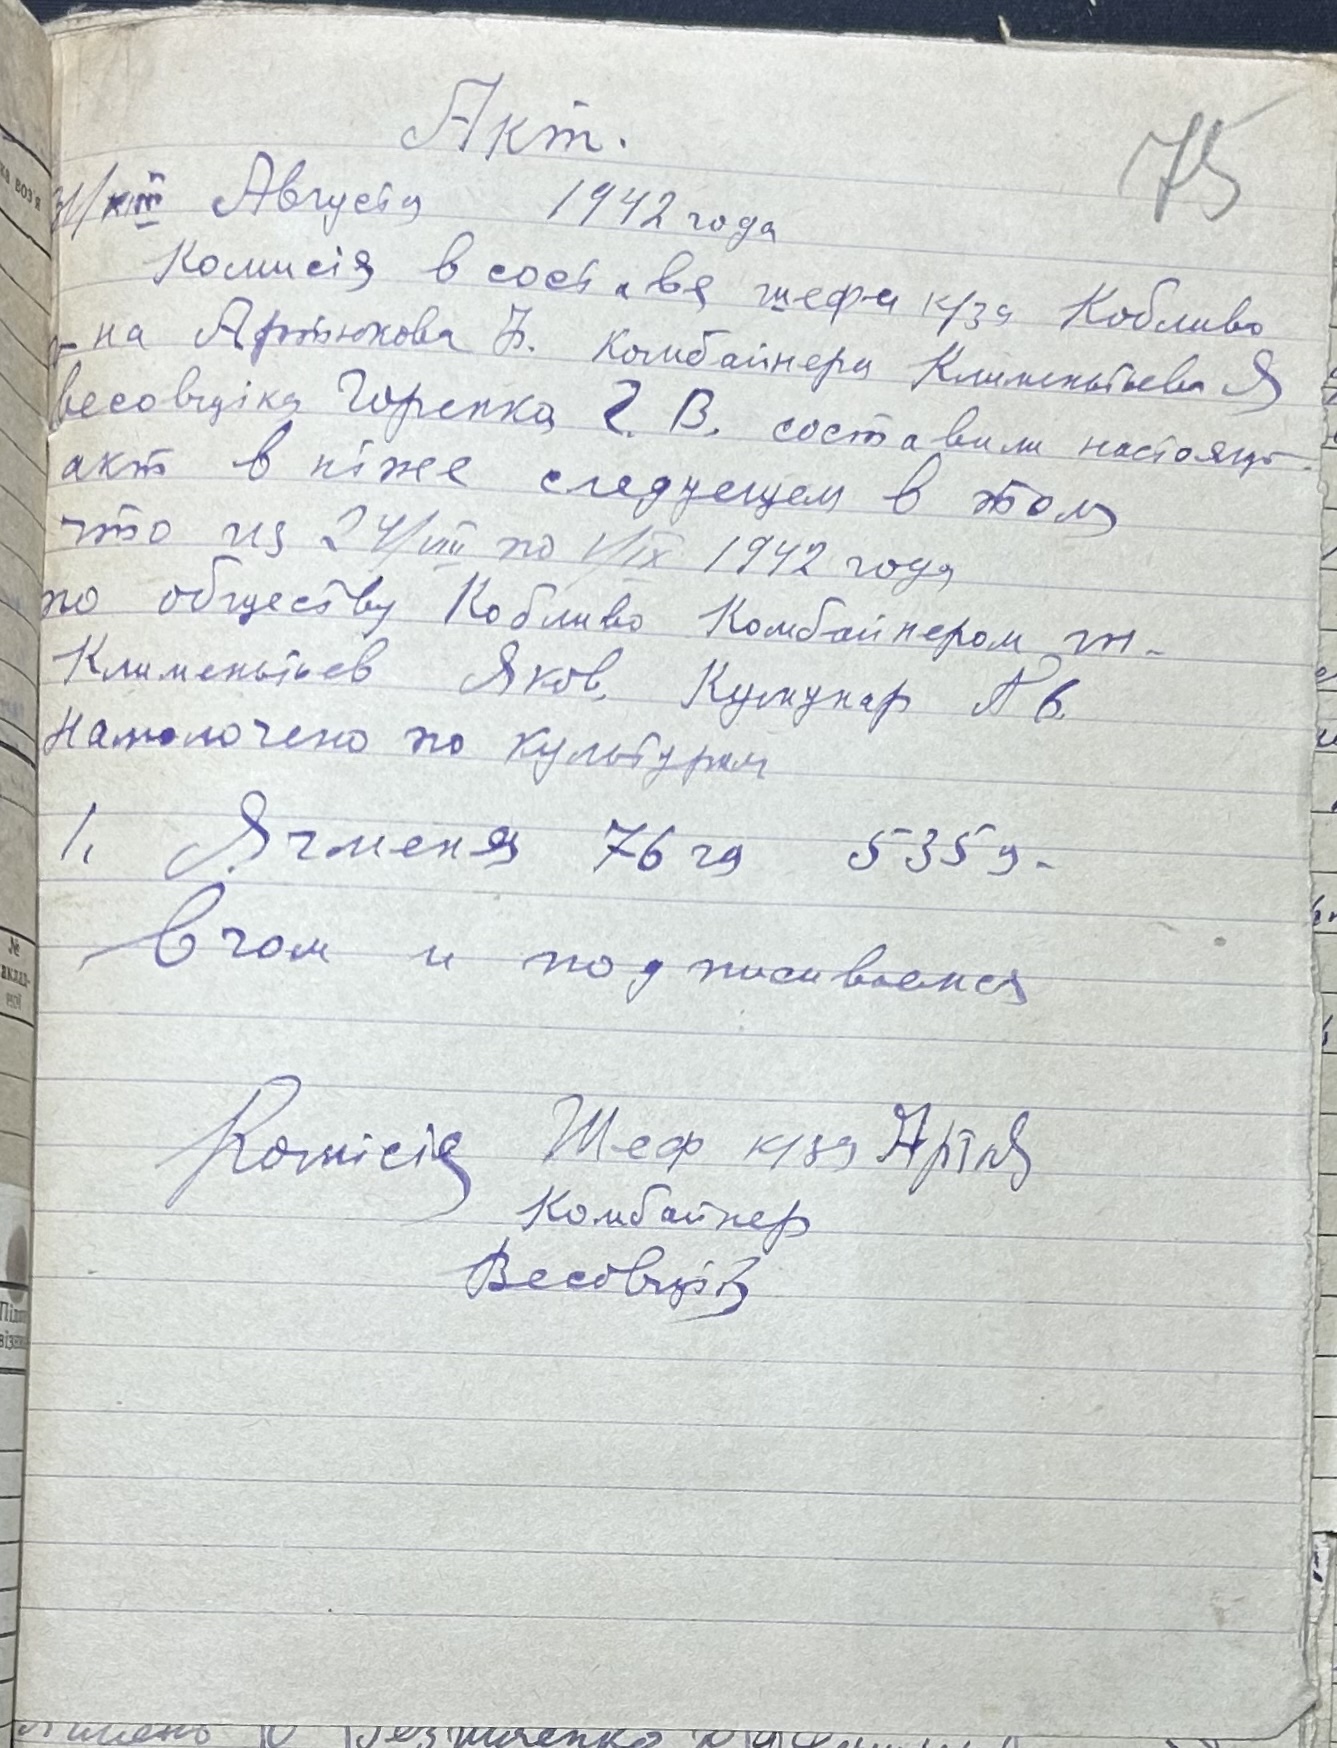 Акт.
75
31/ Августа 1942 года
Комисія в составя шефа к/за Кобливо
р-на Артюхова комбайнера Клименьтьева Я
весовщіка Горепка Г. В. составили настоящ-
акт в ніже следуещем в том
что из 24/VIII по 1/IX 1942 года
по обществу Кобливо Комбайнером т-
Клименьтьев Яков,
Намолочено по культурам
1, Ячменя 76 га 535 ц-
В чом и подписиваемся
Комісія Шеф к/за
Комбайнер
Весовщік